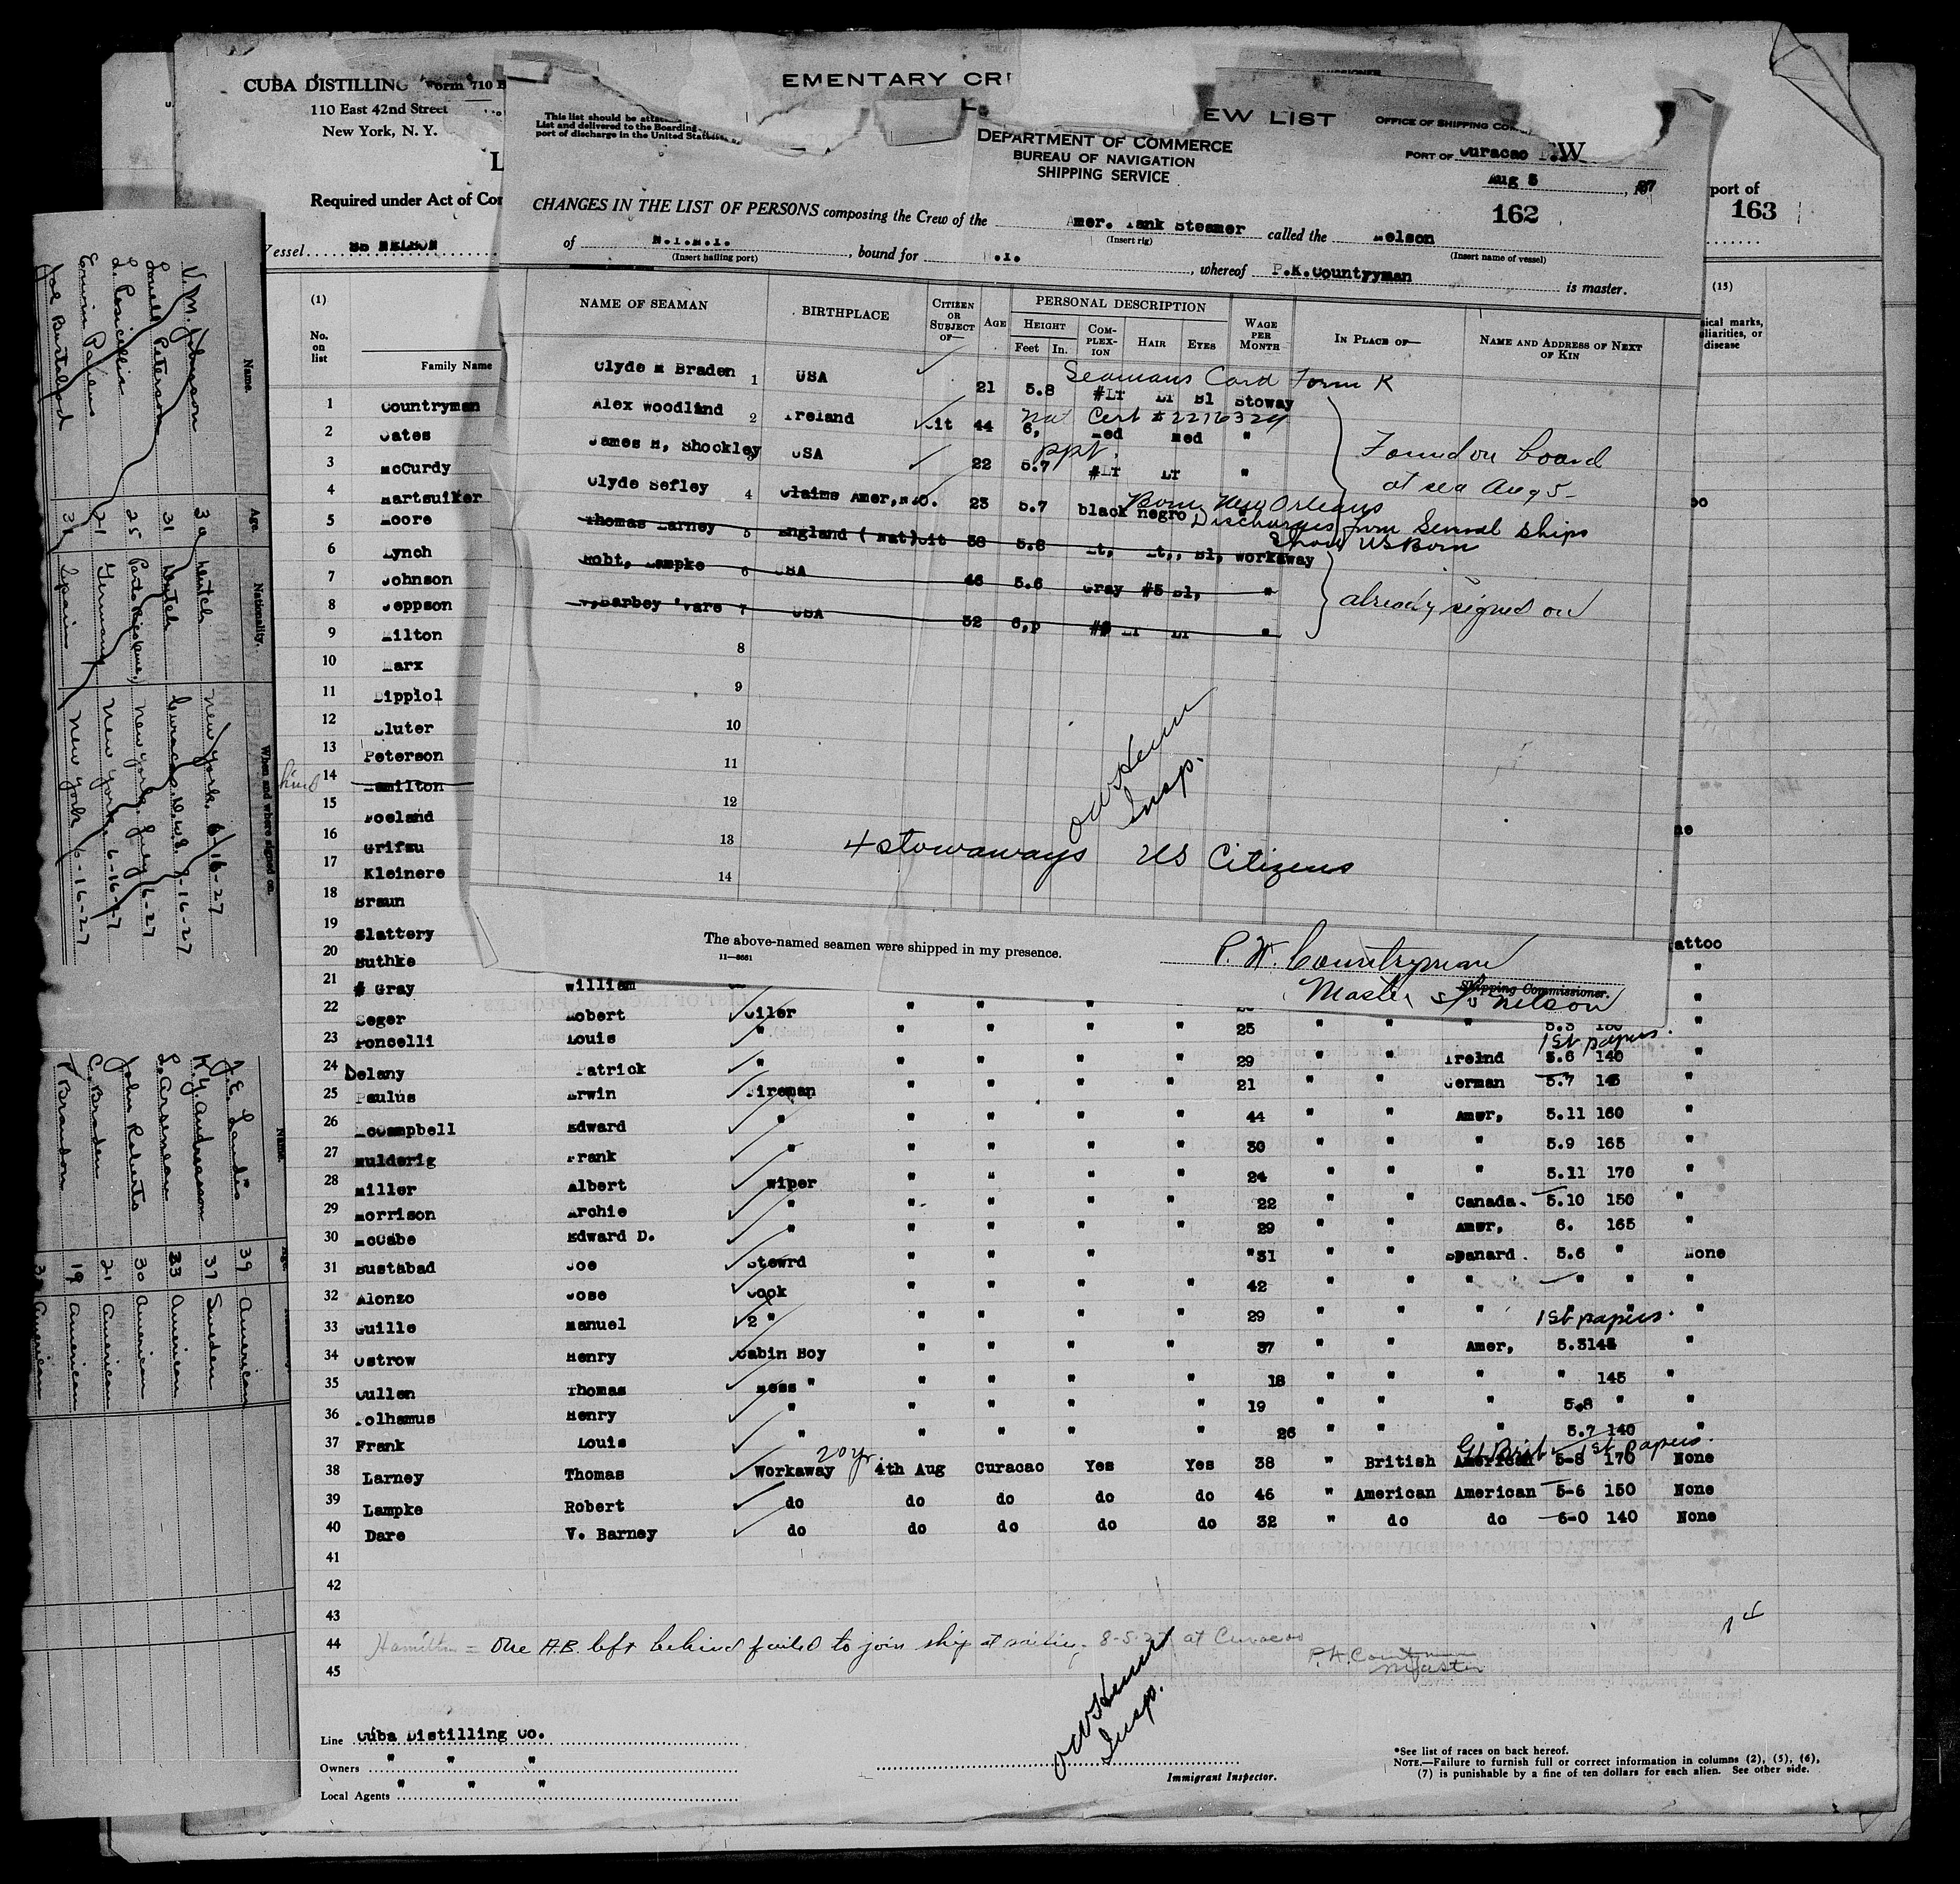 CUBA DISTILLING
Form 710
110 East 42nd Street
New York, N. Y.
Required under Act of
Vessel SS NELSON
port of
163
EMENTARY CR
EW LIST
This list should be
List and delivered to the Boarding
port of discharge in the United States
DEPARTMENT OF COMMERCE
BUREAU OF NAVIGATION
SHIPPING SERVICE
PORT OF Curacao
Aug 5
162
CHANGES IN THE LIST OF PERSONS composing the Crew of the Amer. Tank Steamer called the Nelson
(Insert rig) (Insert name of vessel)
of , bound for , whereof P.K.Countryman is master.
(Insert hailing port)
NAME OF SEAMAN BIRTHPLACE CITIZEN OR SUBJECT OF— AGE PERSONAL DESCRIPTION WAGE PER MONTH IN PLACE OF— NAME AND ADDRESS OF NEXT OF KIN
HEIGHT COMPLEXION HAIR EYES
Feet In.
Seamans Card Form K
Clyde M Braden 1 USA 21 5.8 #LT LT Bl Stoway
Nat Cert # 2276324
Alex Woodlind 2 Ireland Cit 44 6, Med Med "
ppt.
James H, Shockley 3 USA 22 5.7 #LT LT "
Found on board
at sea Aug 5-
Clyde Sefley 4 Claims Amer, 23 5.7 black negro
Born New Orleans
Discharges from Several ships
Show US Born
Thomas Larney 5 England (Nat)Cit 38 5.8 Lt, Lt,, Bl, Workaway
Robt, Lampke 6 USA 46 5.6 Gray Bl, "
V,Barbey 7 USA 32 LT LT "
already signed on
8
9
10
11
12
13
14
4 stowaways US Citizens
Insp.
The above-named seamen were shipped in my presence.
11—8661
P. K. Countryman
Shipping Commissioner.
Master S/S Nelson
(1) (15)
No. on list
Family Name
1 Countryman
2 Oates
3 McCurdy
4 Martsuiker
5 Moore
6 Lynch
7 Johnson
8 Jeppson
9 Milton
10 Marx
11 Dippiol
12 Sluter
13 Peterson
14 Hamilton
15 Roeland
16 Grifzu
17 Kleinere
18 Braun
19 Slattery
20 Buthke
21 Gray William
22 Seger Robert Oiler " " "
23 Poncelli Louis " " " " " 25 " " "
1st papers.
24 Delany Patrick " " " " " 29 " " Irelnd 5.6 140 "
25 Paulus Erwin Fireman " " " " 21 " " German 5.7 145 "
26 McCampbell Edward " " " " " 44 " " Amer, 5.11 160 "
27 Mulderig Frank " " " " " 30 " " " 5.9 165 "
28 Miller Albert Wiper " " " " 24 " " " 5.11 170 "
29 Morrison Archie " " " " " 22 " " Canada. 5.10 150 "
30 McCabe Edward D. " " " " " 29 " " Amer, 6. 165 "
31 Bustabad Joe Stewrd " " " " 31 " " Spanard. 5.6 " None
32 Alonzo Jose Cook " " " " 42 " " " " " "
33 Guille Manuel 2 " " " " " 29 " " " 1st papers. "
34 Ostrow Henry Cabin Boy " " " " 37 " " Amer, 5.3 145 "
35 Cullen Thomas Mess " " " " " 18 " " " " 145 "
36 Polhamus Henry " " " " " 19 " " " 5.8 " "
37 Frank Louis " " " " " 26 " " " 5.7 140 "
20 yr
Gt Brit. 1st papers.
38 Larney Thomas Workaway 4th Aug Curacao Yes Yes 38 " British American 5-8 170 None
39 Lampke Robert do do do do do 46 " American American 5-6 150 None
40 Dare V. Barney do do do do do 32 " do do 6-0 140 None
41
42
43
44 Hamilton = One A.B. left behind failed to join ship at sailing. 8-5-27 at Curacao
45
Master
Insp.
Line Cuba Distilling Co.
Owners " " "
Local Agents " " "
Immigrant Inspector.
*See list of races on back hereof.
NOTE.—Failure to furnish full or correct information in columns (2), (5), (6),
(7) is punishable by a fine of ten dollars for each alien. See other side.
Name. Age. Nationality. When and where signed on.
V. M. Johnson 39 Dutch New York 6-16-27
Lowell Peterson 31 Dutch Curacao, D.W.I.
L. Poncillia 25 Porto New York, July 16-27
Erwin Paulens 21 Germany New York 6-16-27
Joe Bustabad 31 Spain New York 6-16-27
Name.
J. E. Landis 39 American
K. G. Andreasson 37 Sweden
L. Arseneau 33 American
John Roberts 30 American
C. Braden 21 American
Brandon 19 American
American